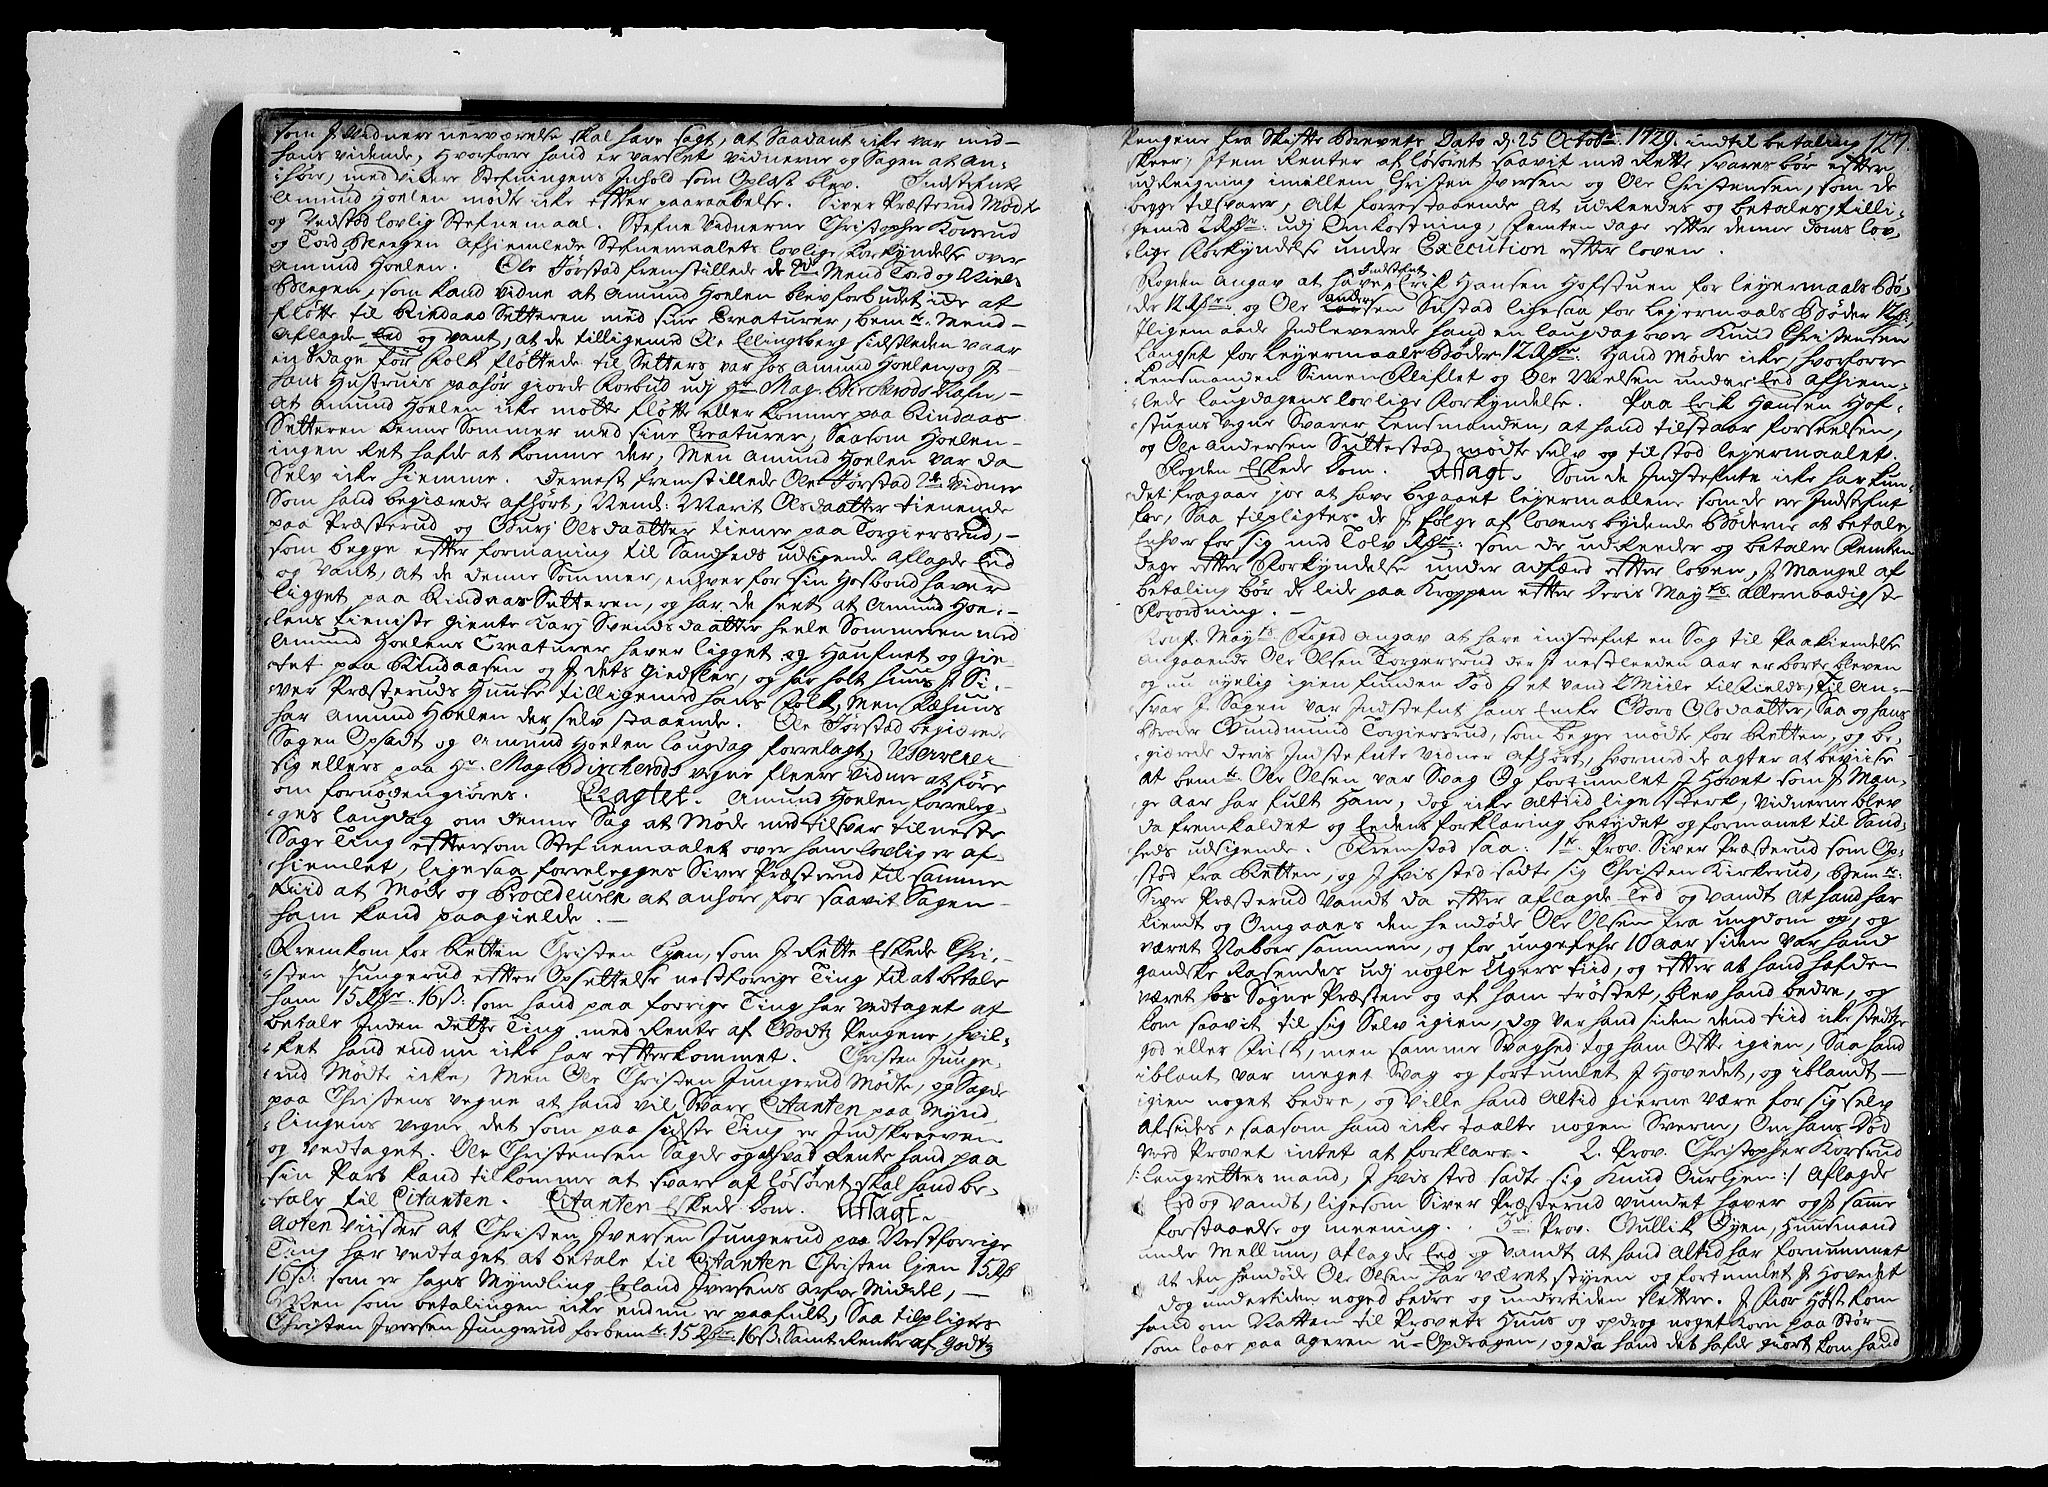 som J Vidners nerværelse skal have sagt, at Saadant icke var med
hans vidende, Hvorforre hand er varslet vidnerne og Sagen at an-
høre, med videre Stefningens Inhold som Oplæst blev. Indstefnte
Amund Hoelen mødte icke efter paaraabelse. Siver Præsterud Mødte
og Vedstod lovlig Stefnemaal. Stefne Vidnerne Christopher Korsrud
og Tord Megen Afhiemlede Stefnemaalets lovlige Forkyndelse over
Amund Hoelen. Ole Jørstad fremstillede de 2de Mend Tord og Niels
Megen, som kand vidne at Amund Hoelen blev forbudet icke at
fløtte til Rindaas Setteren med sine Creaturer, bemte. Mend
Aflagde Eed og vant, at de tilligemed Ole Ellingsberg sidstleden vaar
en 8 dage før Folk fløttede til Setters var hos Amund Hoelen, og J
hans Hustruis paahør giorde Forbud udj Hr Mag. Birckerods Nafn,
At Amund Hoelen icke motte fløtte eller komme paa Rindaas
Setteren denne Sommer med sine Creaturer, Saasom Hoelen
ingen Ret hafde at komme der, Men Amund Hoelen var da
Selv icke hiemme. Dernest fremstillede Ole Jørstad 2de Vidner
Som hand begiærede afhørt, Nemd: Marit Olsdaatter tienende
paa Præsterud og Gurj Olsdaatter tiener paa Torgiersrud,
som begge efter formaning til Sandheds udsigende Aflagde Eed
og vant, at de denne Sommer, enhver for sin Hosbond haver
ligget paa Rindaas Setteren, og har de seet at Amund Hoe-
lens tieniste giente Karj Svendsdaatter heele Sommeren med
Amund Hoelens Creaturer haver ligget og Haufnet og Gie-
tet paa Rindaasen og J dets Giedsler, og har holt huus J Si-
ver Præsteruds Huuse tilligemed hans Folk, Men Fæhuus
har Amund Hoelen der selv staaende. Ole Jørstad begiærede
Sagen Opsadt og Amund Hoelen laugdag forrelagt, Reserverede
sig ellers paa Hr. Mag. Birckerods vegne fleere Vidner at føre
om fornøden giøres. Eragtet. Amund Hoelen forreleg-
ges laugdag om denne Sag at Møde med tilsvar til neste
Sage Ting eftersom Stefnemaalet over ham lovlig er af-
hiemlet, ligesaa forrelegges Siver Præsterud til samme
tiid at Møde og Procedeuren at anhøre for saavit Sagen
ham kand paagielde.
Fremkom for Retten Christen Lyen, som J Rette Eskede Chri-
sten Jungerud efter Opsettelse nestforrige Ting til at betale
ham 15 Rdr. 16 s: som hand paa forrige Ting har vedtaget at
betale Inden dette Ting med Rente af Godtz Pengene, hvil-
ket hand endnu icke har efterkommet. Christen Junge-
rud Mødte icke, Men Ole Christensen Jungerud Mødte, og Sagde
paa Christens vegne at hand vil Svare Citanten paa Mynd-
lingens vegne det som paa sidste Ting er Indskreeven
og vedtaget. Ole Christensen Sagde og at hvad Rente hand paa
sin Part kand tilkomme at svare af løsøret skal hand be-
tale til Citanten. Citanten Eskede Dom. Afsagt.
Acten viiser at Christen Iversen Jungerud paa Nestforrige
Ting har vedtaget at betale til Citanten Christen Lyen 15 Rdr
16 s: som er hans Myndling Erland Iversens Arfve Middel,
Men som betalingen icke endnu er paafult, Saa tilpligtes
Christen Iversen Jungerud forbemte. 15 Rdr. 16 s: Samt Renter af Godtz
Pengene fra Skifte Brevets Dato d: 25 Octobr. 1729. indtil betaling 127.
skeer, Item Renter af løsøret saavit med Rette svares bør efter
udreigning imellem Christen Iversen og Ole Christensen, som de
begge tilsvarer, Alt forrestaaende At udReedes og betales, tilli-
gemed 2 Rdr: udj Omkostning, femten dage efter denne doms lov-
lige Forkyndelse under Execution efter loven.
Fogden Angav at have Indstefnt Erik Hansen Hofstuen for leyermaals Bø-
der 12 Rdr: og Ole Anders sen Sustad ligesaa for Lejermaals Bøder 12 Rdr,
Jligemaade Indleverede hand en laugdag over Knud Christensen
Langset for Leyermaals Bøder 12 Rdr. Hand Møder icke, hvorforre
Lensmanden Simen Kliflet og Ole Nielsen under Eed afhiem-
lede laugdagens lovlige Forkyndelse. Paa Erik Hansen Hof-
stuens Vegne Svarer Lensmanden, at hand tilstaar forseelsen,
og Ole Andersen Suttestad mødte selv og tilstod leyermaalet.
Fogden Eskede Dom. Afsagt. Som de Indstefnte icke har kun-
det fragaae jo at have begaaet leyermaalene som de ere Indstefnt
for, Saa tilpligtes de J følge af lovens bydende Bøderne at betale
Enhver for sig med Tolv Rdr: som de udReeder og betaler Femten
dage efter Forkyndelse under adfærd efter loven, J Mangel af
betaling bør de lide paa Kroppen efter Deris Mayts. Allernaadigste
Forordning.
Kongl. Mayts. Foged Angav at have indstefnt en Sag til Paakiendelse
Angaaende Ole Olsen Torgersrud der J nestleeden Aar er borte bleven
og nu nyelig igien funden Død J et vand 2 Miile til Fields, Til An-
svar J Sagen var Indstefnt hans Encke Goro Olsdaatter, Saa og hans
Broder Gundmund Torgiersrud, som begge mødte for Retten, og be-
giærede deris Indstefnte Vidner Afhørt, hvormed de agter at beviise
at bemte. Ole Olsen var Svag Og fortumlet J Hovet som J Man-
ge Aar har fult Ham, dog icke Altiid lige sterk, Vidnerne blev
da fremkaldet og Eedens forklaring betydet og formanet til Sand-
heds udsigende. Fremstod saa: 1te. Prov. Siver Præsterud som Op-
stod fra Retten, og J hvis sted sadte sig Christen Kirkerud, bemte:
Siver Præsterud Vandt da efter aflagde Eed og vandt At hand har
kiendt og Omgaaes den hendøde Ole Olsen fra ungdom op, og
været Naboer sammen, og for ungefehr 10 Aar siden var hand
gandske Rasendes udj nogle Ugers tiid, og efter at hand hafde
været hos Sogne Præsten og af ham trøstet, blev hand bedre, og
kom saavit til sig Selv igien, dog var hand siden dend tiid icke stedtze
god eller Frisk, men samme Svaghed tog ham Ofte igien, Saa hand
iblant var meget Svag og fortumlet J Hovedet, og iblandt
igien noget bedre, og ville hand Altid gierne være for sig selv
afsides, saasom hand icke taalte nogen Sverm, Om hans Død
veed Provet intet at forklare. 2. Prov. Christopher Korsrud
/: laugrettesmand, J hvis sted sadte sig Knud Ourlyen :/ Aflagde
Eed og vandt, ligesom Siver Præsterud vundet haver og J samme
forstaaelse og meening. 3de Prov. Gullik Øyen, Huusmand
under Mellum, aflagde Eed og vandt at hand Altid har fornummet
at den hendøde Ole Olsen har været styren og fortumlet J Hovedet
dog undertiden noged bedre og undertiden sletter. J fior Høst kom
hand om Natten til Provets Huus og opdrog noget Korn paa Stør
som laae paa ageren u-Opdragen, og da hand det hafde giort kom hand